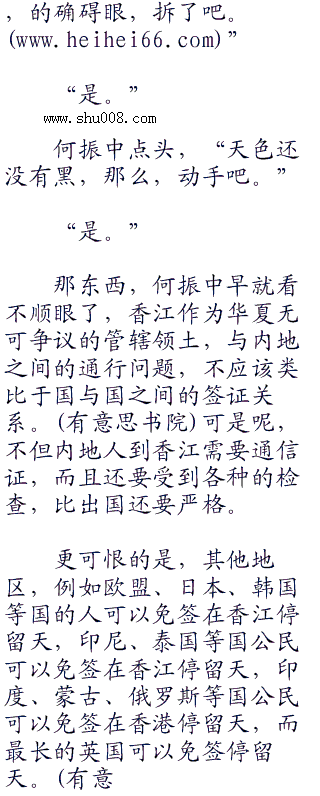 ，的确碍眼，拆了吧。
(www.heihei66.com)”
“是。”
www.shu008.com
何振中点头，“天色还
没有黑，那么，动手吧。”
“是。”
那东西，何振中早就看
不顺眼了，香江作为华夏无
可争议的管辖领土，与内地
之间的通行问题，不应该类
比于国与国之间的签证关
系。(有意思书院)可是呢，
不但内地人到香江需要通信
证，而且还要受到各种的检
查，比出国还要严格。
更可恨的是，其他地
区，例如欧盟、日本、韩国
等国的人可以免签在香江停
留天，印尼、泰国等国公民
可以免签在香江停留天，印
度、蒙古、俄罗斯等国公民
可以免签在香港停留天，而
最长的英国可以免签停留
天。(有意